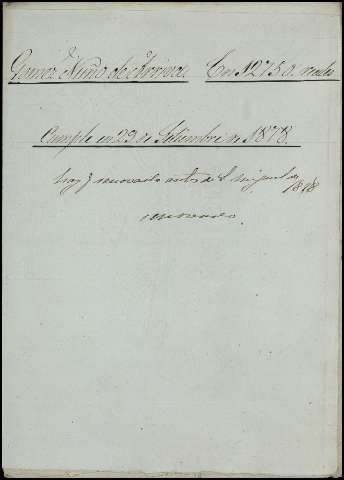 Gomez Nuño de Arriva. En 12750. reales
Cumple en 29 de Setiembre de 1878.
hay q renovarla antes de S. Miguel de 1878